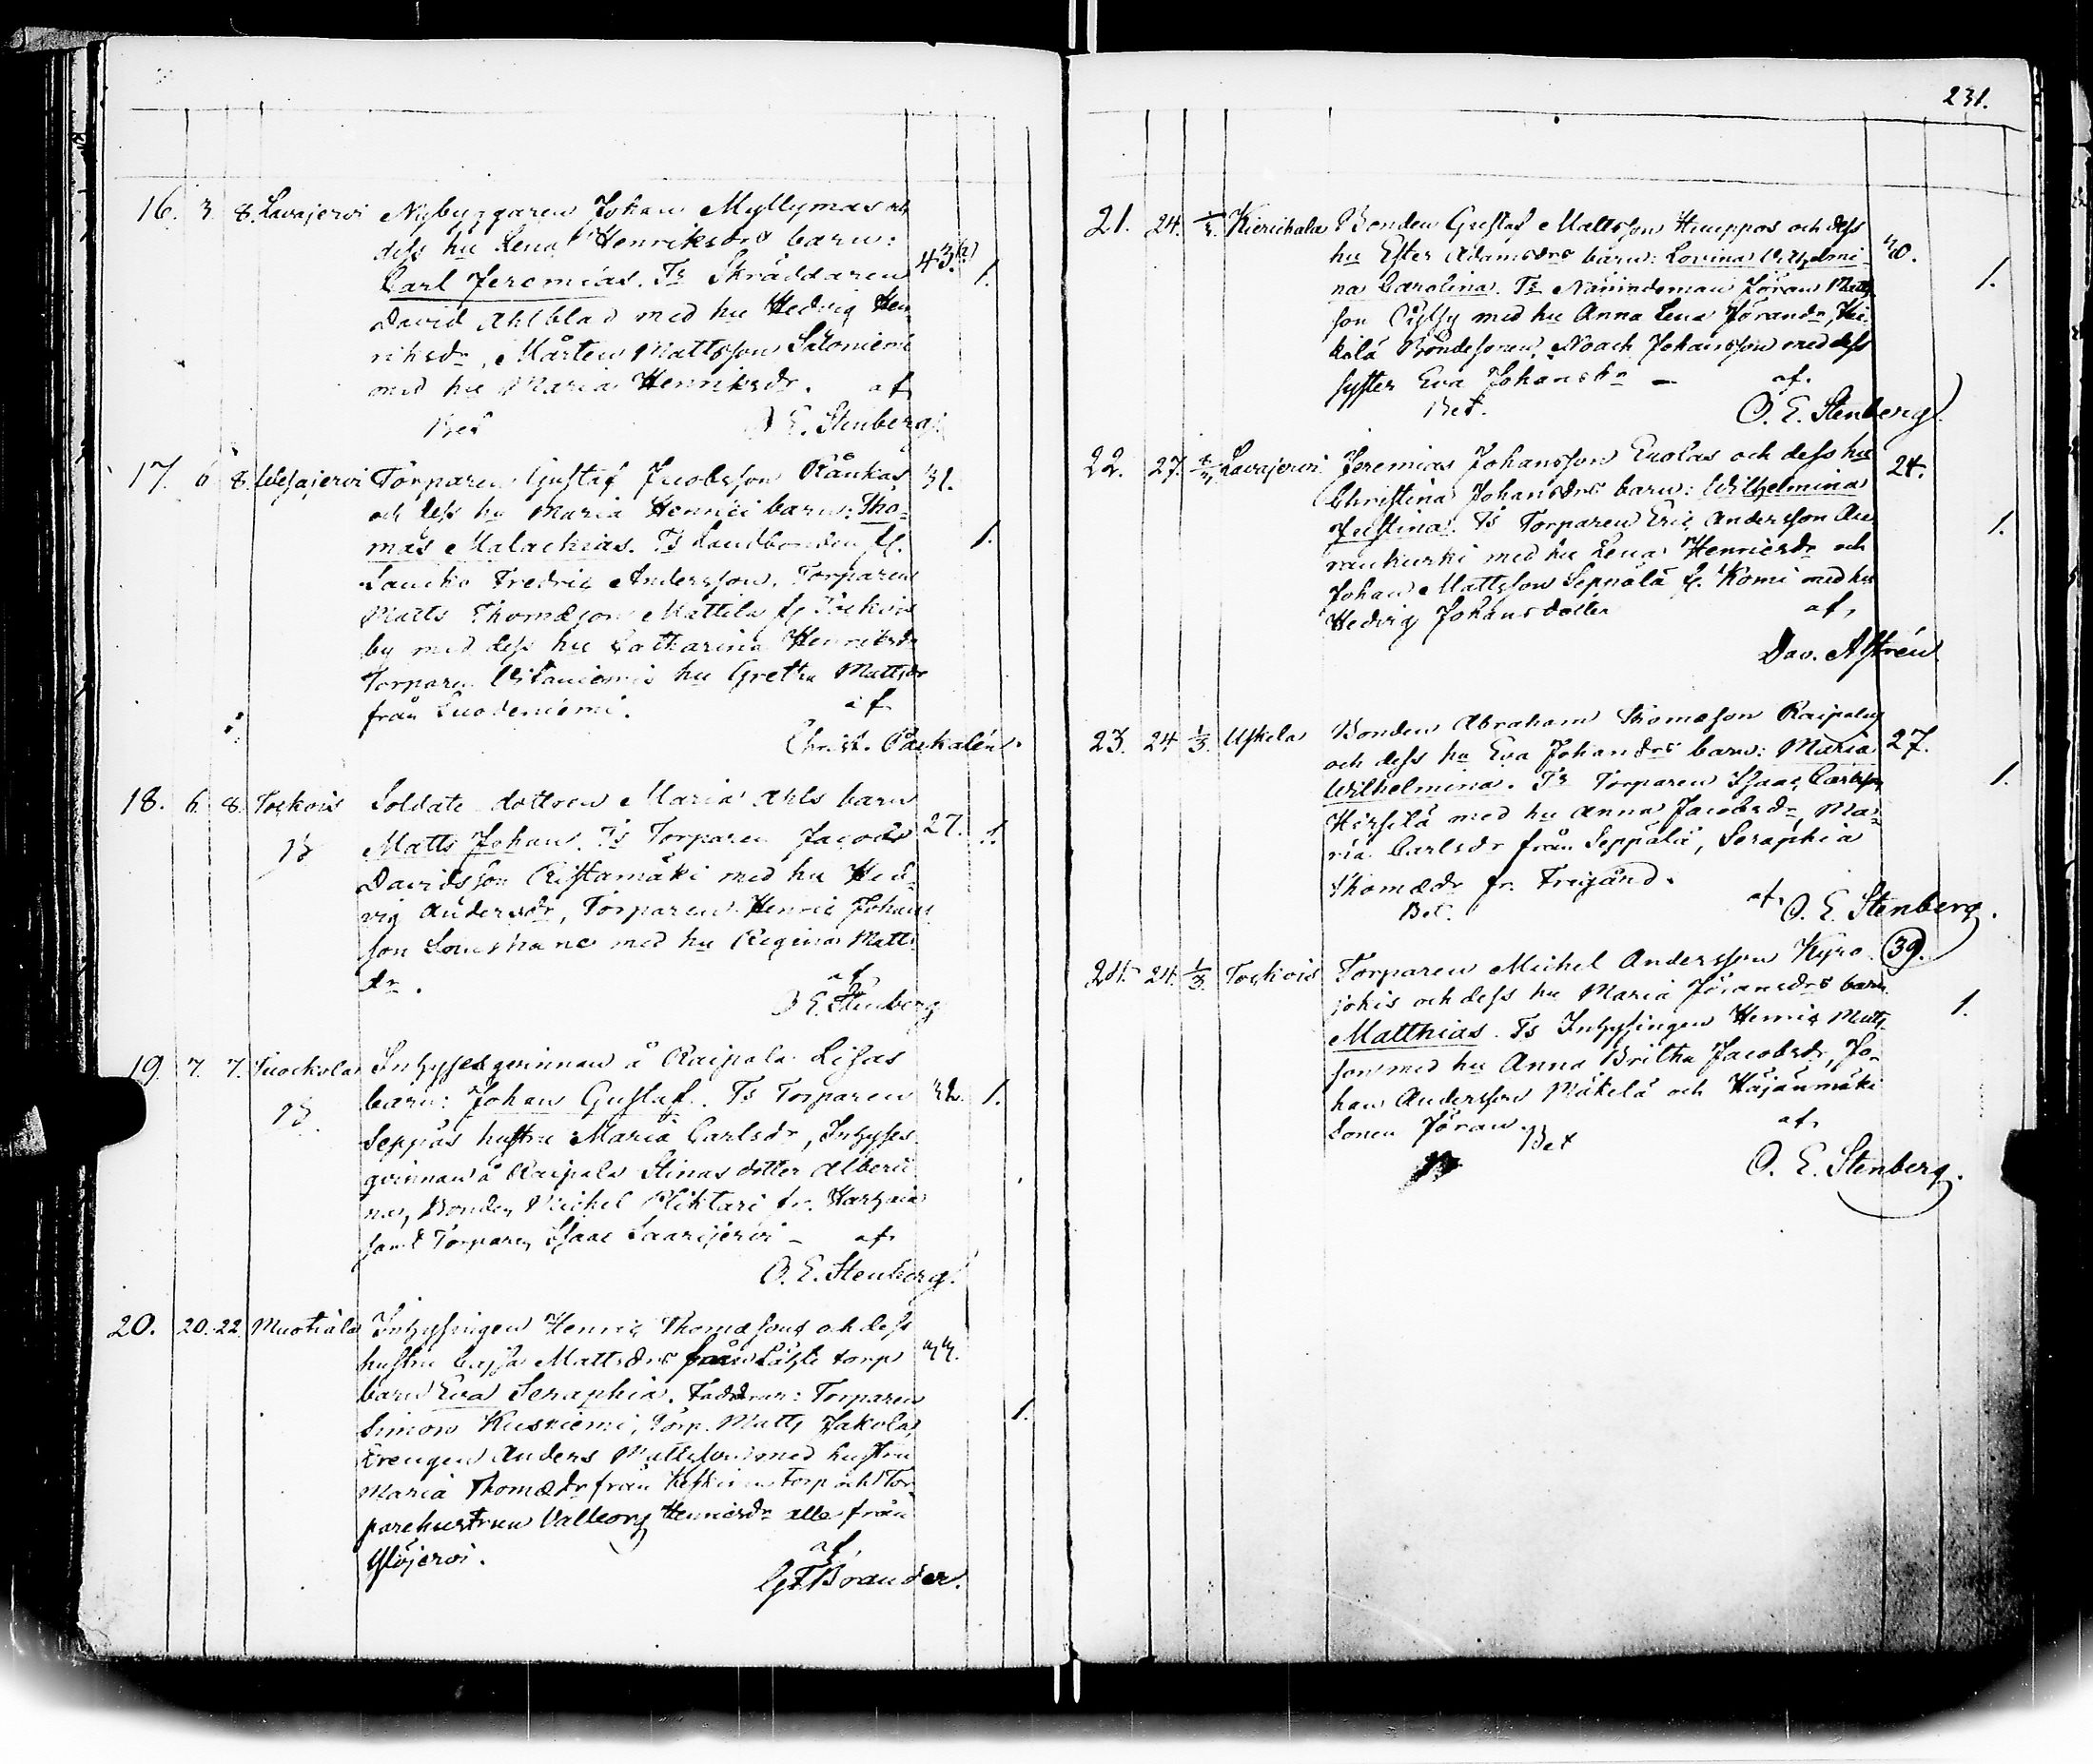 231.
16. 3. 8. Lavajervi Nybyggaren Johan Myllymas och
dess hu Lena Henriksdrs barn: 43.
Carl Jeremias. Ts Skräddaren 1.
David Ahlblad med hu Hedvig Hen
riksdr, Mårten Mattsson Saloniemi
med hu Maria Henriksdr. af
O E. Stenberg.
17. 6 8. Wesajervi Torparen Gustaf Jacobsson Rånkas 31.
och dess hu Maria Henrici barn: Tho-
mas Malachias. Ts Landbonden fr. 1.
Laucko Fredric Andersson, Torparen
Matts Thomæson Mattila fr Tockois
by med dess hu Catharina Henricsdr
Torparn hu Gretha Mattsdr
från Luodeniemi. af
Christ. Paskalén.
18. 6. 8. Tockois Soldate dottren Maria Ahls barn
Matts Johan. Ts Torparen Jacob 27. 1.
Davidsson Ristamäki med hu Hed-
vig Andersdr, Torparen Henric Johans
son med hu Regina Matts
dr. af
O E. Stenberg
19. 7. 7. Suockola Inhysesqvinnan å Raipala Lisas
barn: Johan Gustaf. Ts Torparen 32. 1.
Seppäs hustru Maria Carlsdr, Inhyses
qvinnan å Raipala Stinas dotter Alberti
na, Bonden Michel Pliktari fr.
samt Torparen Isaac Saarijervi – af
O. E. Stenberg.
20. 20. 22. Muotiala Inhysingen Henric Thomæsons och dess
hustru Cajsa Mattsdrs från torp 33.
barn Eva Seraphia. Faddrar: Torparen
Simon Kusniemi, Torp. Matts Jakola, 1.
Drengen Anders Mattsson med hustru
Maria Thomædr från torp och Tor-
parehustrun Valborg Henricsdr alla från
Ylöjervi. af
G F Brander.
21. 24. Kierikala Bonden Gustaf Mattsson Humppos och dess
hu Ester Adamsdrs barn: Lovisa Wilhelmi- 40.
na Carolina. Ts Nämndeman Jöran Matts 1.
son med hu Anna Lena Jöransdr,
kälä Bondesonen Noach Johansson med dess
syster Eva Johansdr – af.
Bet. O. E. Stenberg.
22. 27. Lavajervi Jeremias Johansson Euolas och dess hu 24.
Christina Johansdrs barn: Wilhelmina
Justina. Ts Torparen Eric Andersson Au 1.
rankurki med hu Lena Henricsdr och
Johan Mattsson Seppälä fr. Komi med hu
Hedvig Johansdotter af,
Dav. Astrén
23. 24 1/3. Uskela Bonden Abraham Thomæson Raipalas
och dess hu Eva Johansdrs barn: Maria 27.
Wilhelmina. Ts Torparen Isaac Carlsson 1.
Hirsilä med hu Anna Jacobsdr, Ma-
ria Carlsdr från Seppälä, Seraphia
Thomædr fr. Frigånd. af.
Bet. O. E. Stenberg.
24. 24. 1/3. Tockois Torparen Michel Andersson Kyro- 39.
jokis och dess hu Maria Jöransdrs barn
Matthias. Ts Inhysingen Henric Matts 1.
son med hu Anna Britha Jacobsdr, Jo-
han Andersson Mäkelä och Kajanmäki
sonen Jöran. af.
Bet O. E. Stenberg.